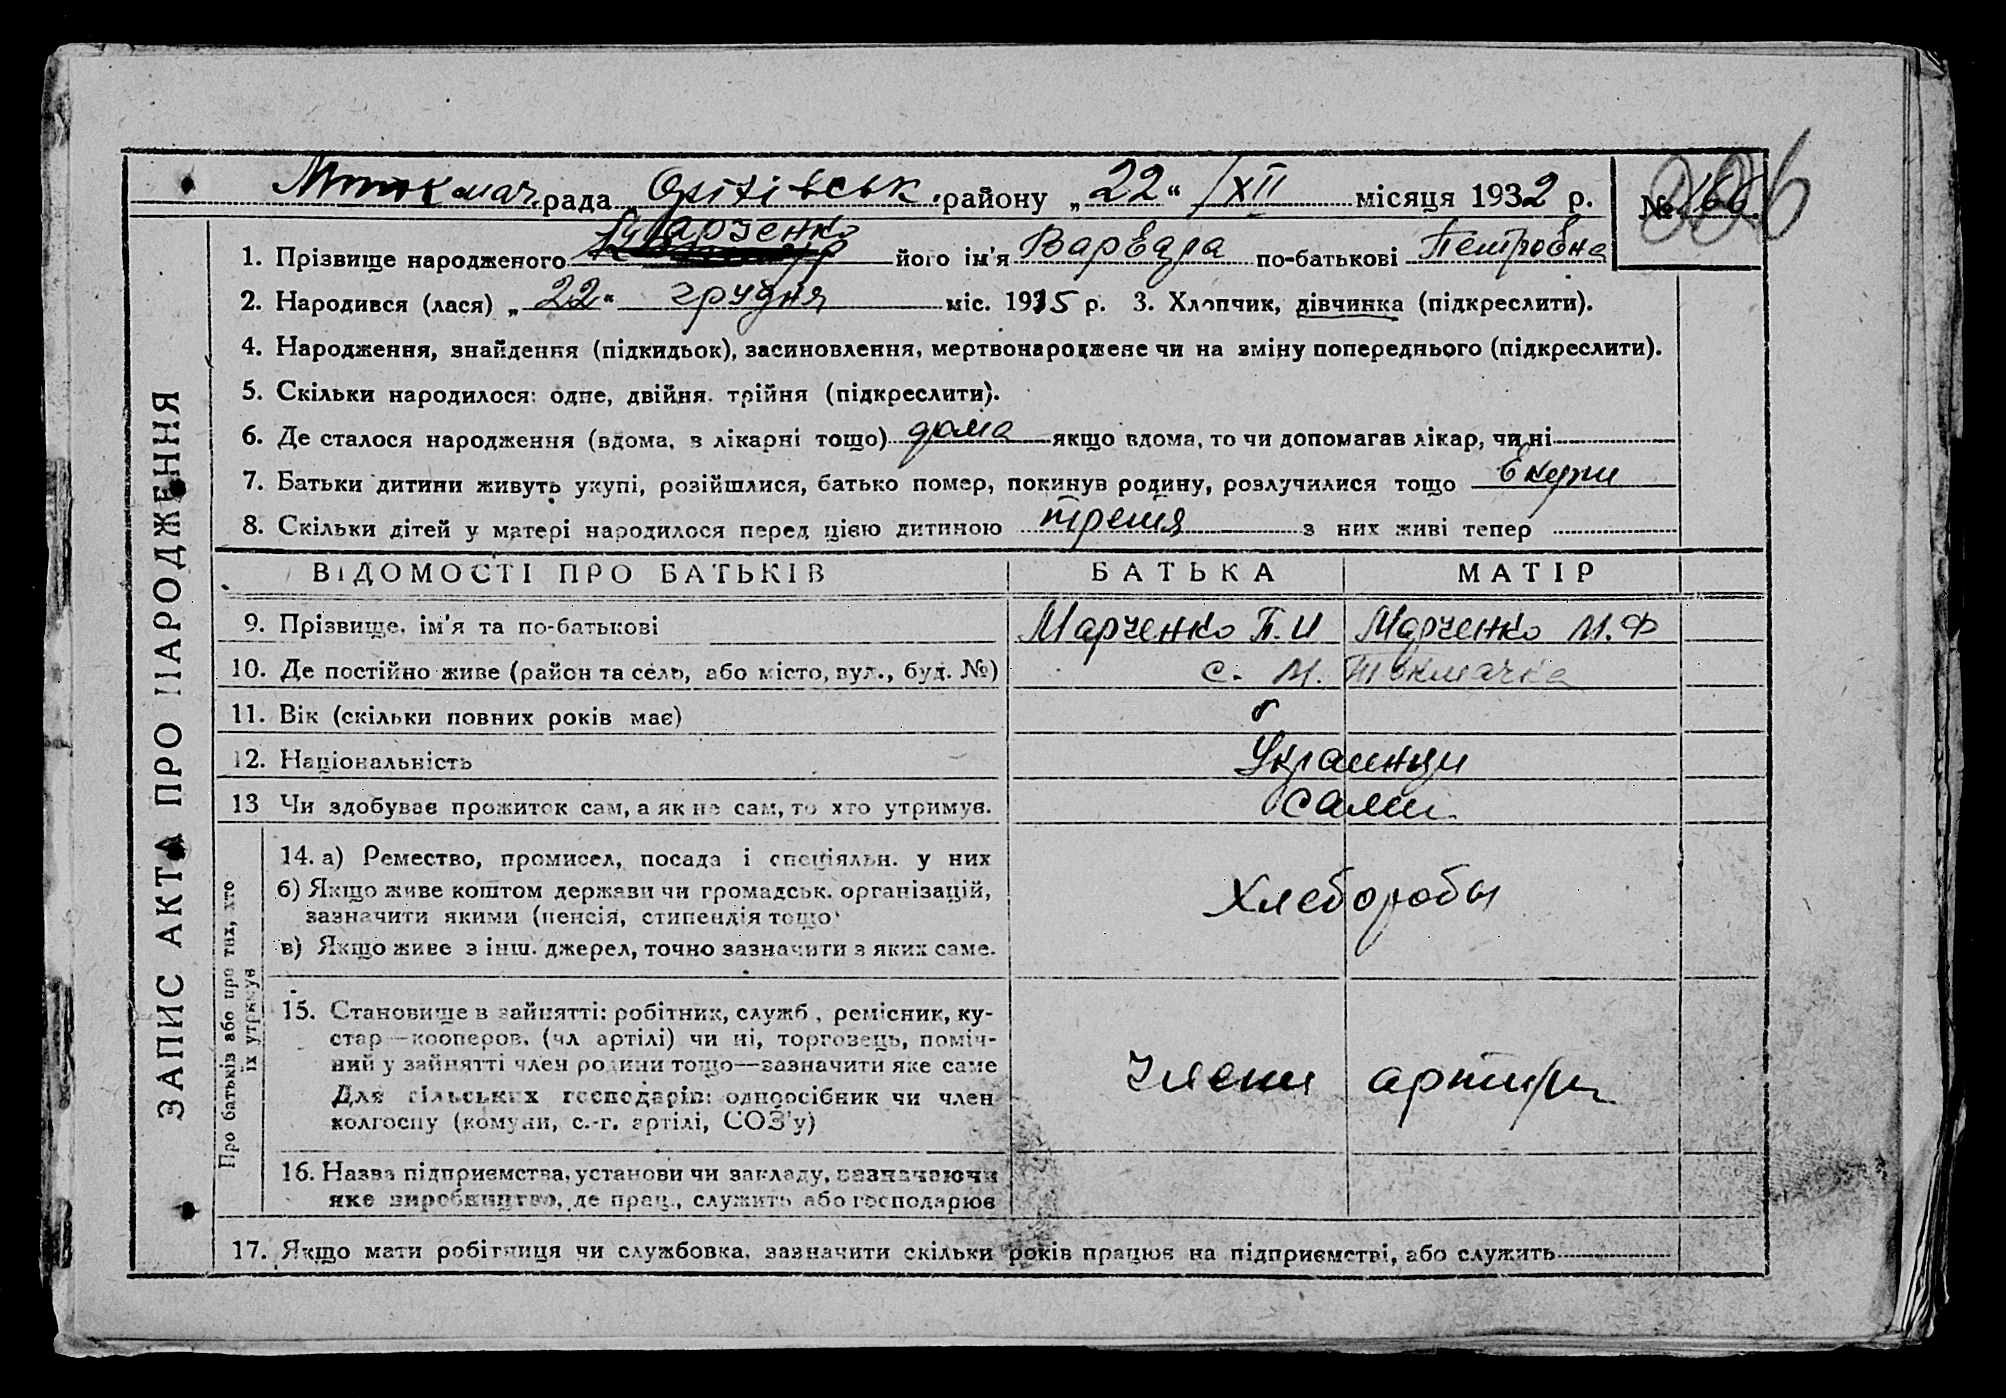 Мтокмач. рада Оріхівськ. району „22“ /XII місяця 1932 р. №
1. Прізвище народженого Марченко його ім'я Варвара по-батькові Петровна
2. Народився (лася) „22“ грудня міс. 1915 р. 3. Хлопчик, дівчинка (підкреслити).
4. Народження, знайдення (підкидьок), засиновлення, мертвонароджене чи на зміну попереднього (підкреслити).
5. Скільки народилося: одне, двійня, трійня (підкреслити).
6. Де сталося народження (вдома, в лікарні тощо) дома якщо вдома, то чи допомагав лікар, чи ні
7. Батьки дитини живуть укупі, розійшлися, батько помер, покинув родину, розлучилися тощо Вкупи
8. Скільки дітей у матері народилося перед цією дитиною третя з них живі тепер
ВІДОМОСТІ ПРО БАТЬКІВ БАТЬКА МАТІР
9. Прізвище, ім'я та по-батькові Марченко П.И Марченко М.Ф
10. Де постійно живе (район та село, або місто, вул., буд. №) с. М. Токмачка
11. Вік (скільки повних років має)
12. Національність Украинци
13 Чи здобуває прожиток сам, а як не сам, то хто утримує. сами
14. а) Ремество, промисел, посада і спеціяльн. у них
б) Якщо живе коштом держави чи громадськ. організацій,
зазначити якими (пенсія, стипендія тощо)
в) Якщо живе з інш. джерел, точно зазначити з яких саме.
Хлеборобы
15. Становище в зайнятті: робітник, служб., ремісник, ку-
стар—кооперов. (чл артілі) чи ні, торговець, поміч-
ний у зайнятті член родини тощо—зазначити яке саме
Для сільських господарів: одноосібник чи член
колгоспу (комуни, с.-г. артілі, СОЗ'у)
члени артили
16. Назва підприємства, установи чи закладу, зазначаючи
яке виробництво, де прац., служить або господарює
17. Якщо мати робітниця чи службовка, зазначити скільки років працює на підприємстві, або служить
ЗАПИС АКТА ПРО НАРОДЖЕННЯ
Про батьків або про тих, хто
їх утримує